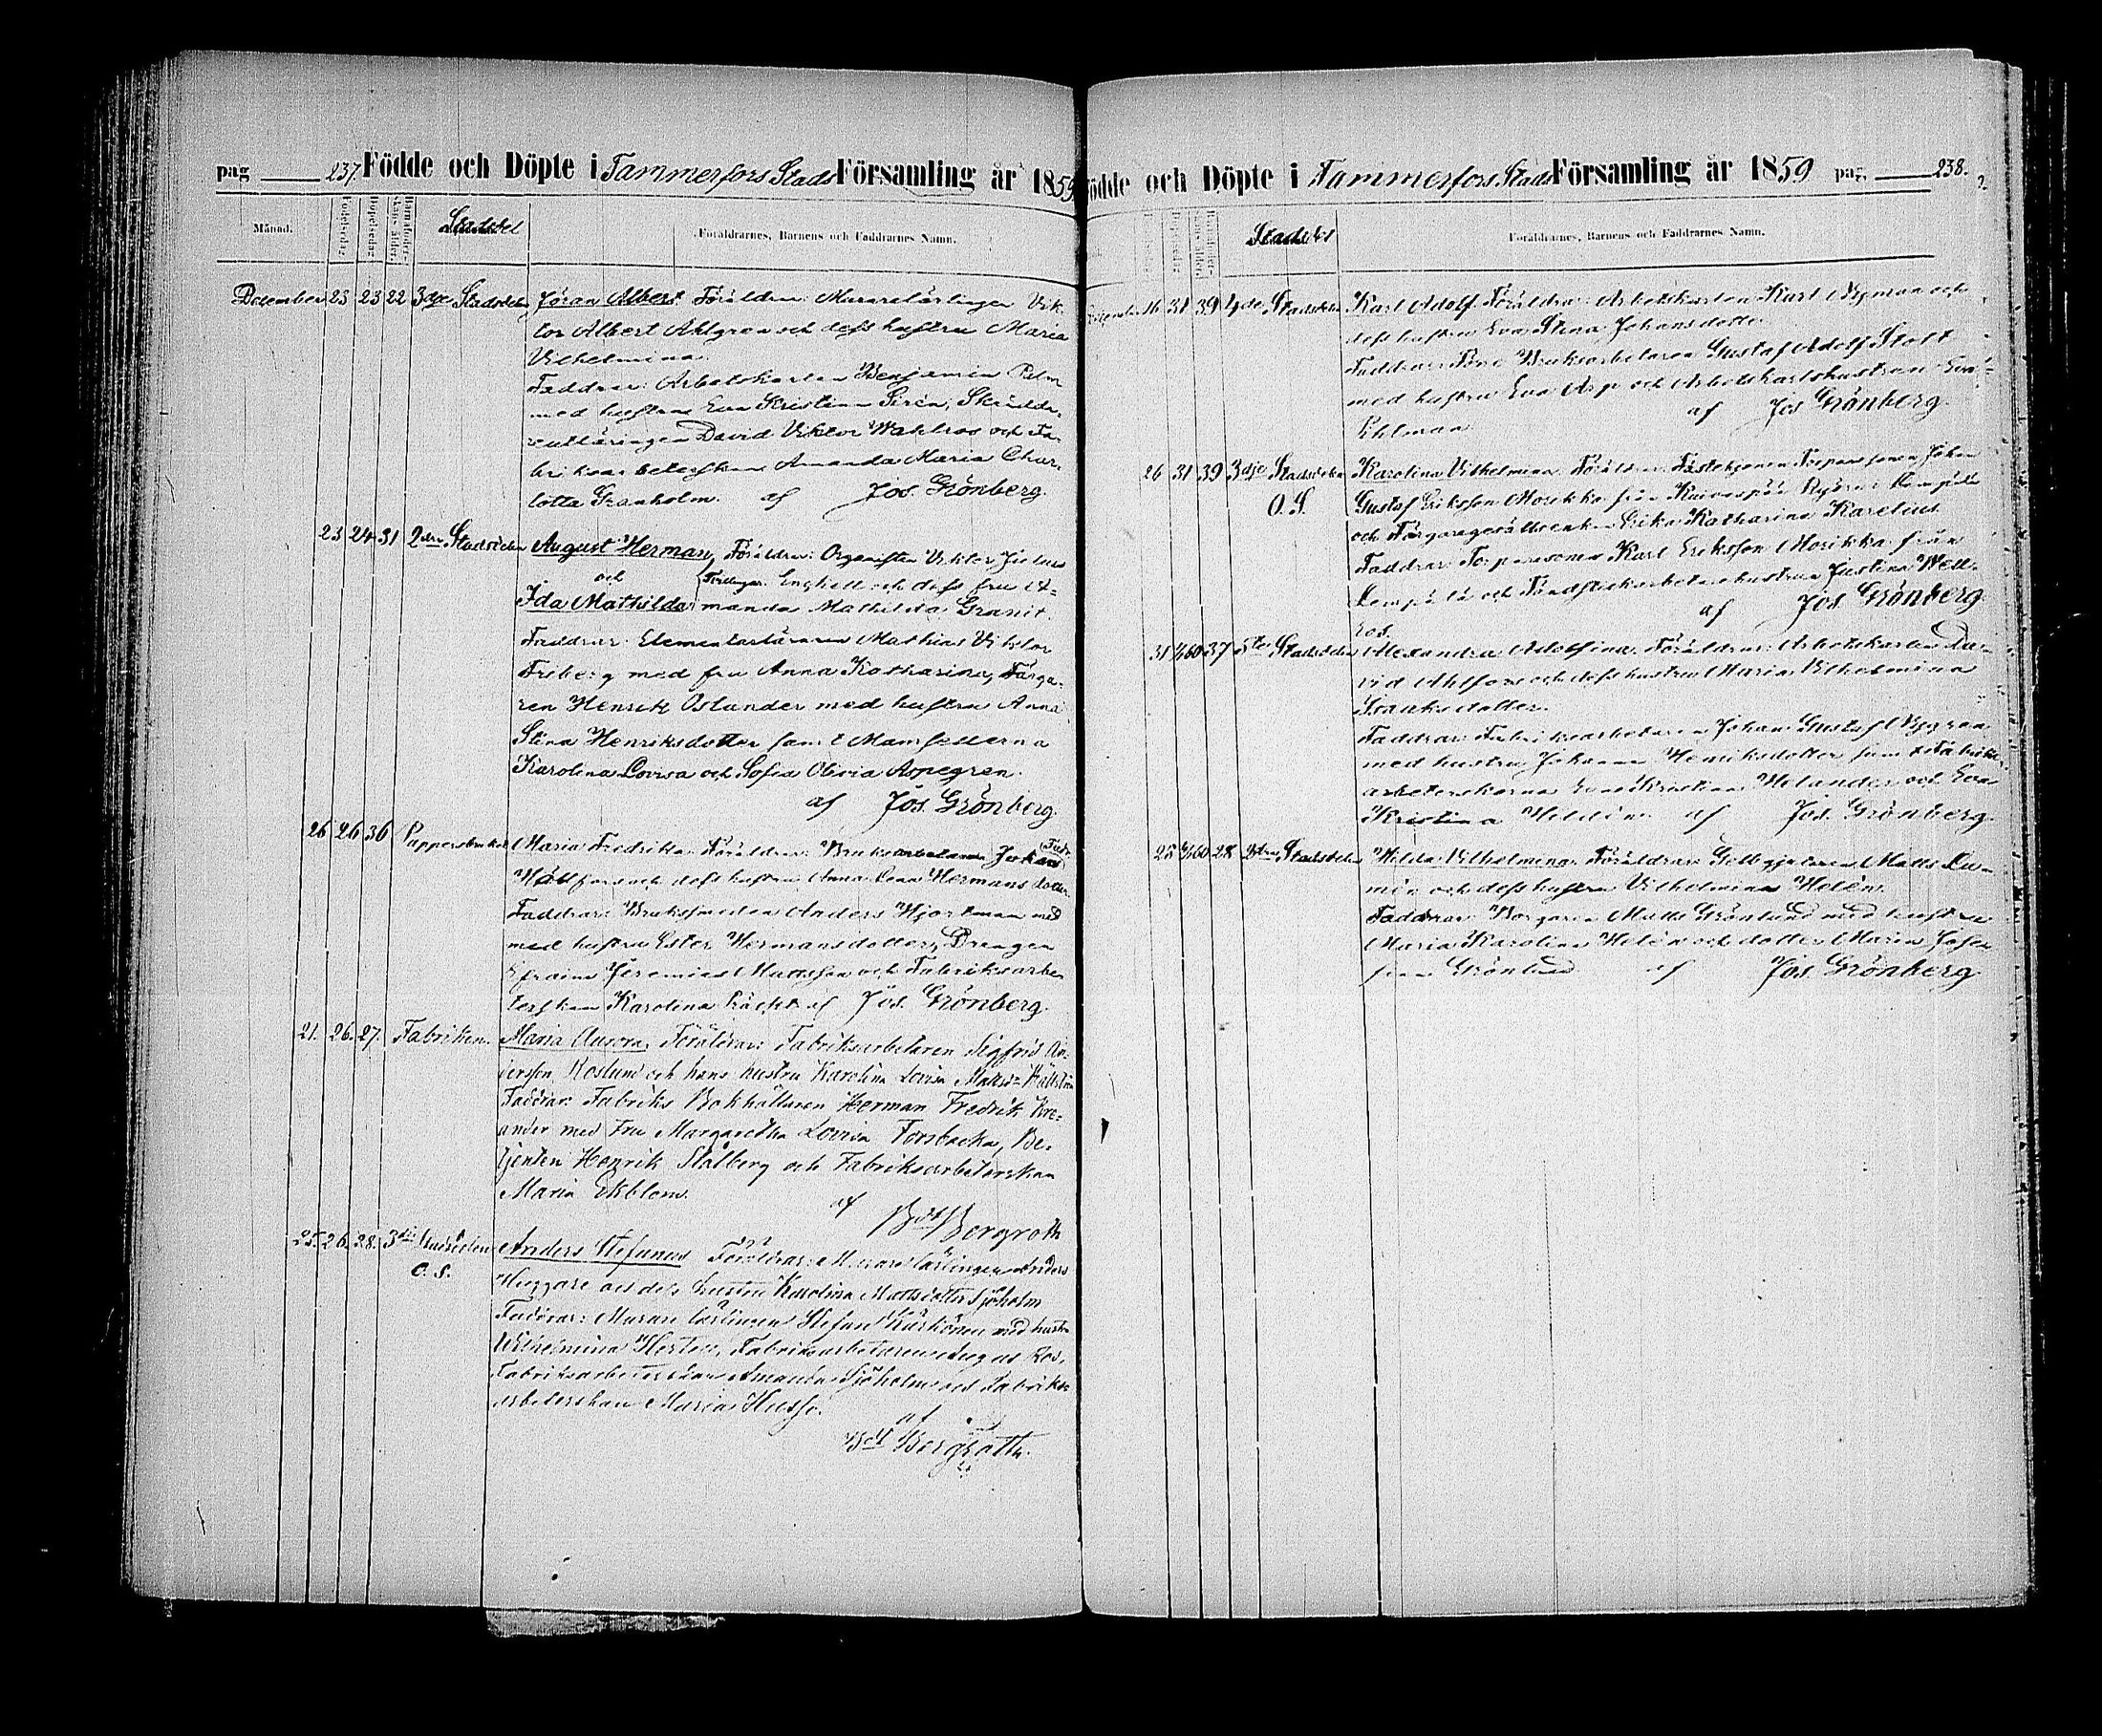 pag 237. Födde och Döpte i Tammerfors Stads Församling år 1859
Månad. Födelsedag Döpelsedag Stadsdel Föräldrarnes, Barnens och Faddrarnes Namn.
December 23 23 22 3dje Stadsdelen Jöran Albert Föräldrar: Murarelärlingen Vik-
tor Albert Ahlgren och dess hustru Maria
Vilhelmina.
Faddrar: Arbetskarlen Benjamin Palm
med hustru Eva Kristina Sirén, Skrädda-
relärlingen David Viktor Wahlros och Fa-
briksarbeterskan Amanda Maria Char-
lotta Granholm. af Jos. Grönberg.
23 24 31 2dra Stadsdelen August Herman, Föräldrar: Organisten Viktor Julius
och Tvillingar. Enghell och dess fru A-
Ida Mathilda manda Mathilda Granit.
Faddrar: Elementarläraren Mathias Viktor
Freberg med fru Anna Katharina, Färga-
ren Henrik Oslander med hustru Anna
Stina Henriksdotter samt Mamsellerna
Karolina Lovisa och Sofia Olivia Aspegren.
af Jos. Grönberg.
26 26 36 Pappersbruket Maria Fredrika. Föräldrar: Bruksarbetaren Johan
och dess hustru Anna Lena Hermansdotter.
Faddrar: Brukssmeden Anders Hjortman med
med hustru Ester Hermansdotter, Drengen
Efraim Jeremias Mattsson och Fabriksarbe-
terskan Karolina af Jos. Grönberg.
21. 26. 27. Fabriken. Maria Aurora, Föräldrar: Fabriksarbetaren Sigfrid An-
dersson Roslund och hans hustru Karolina Lovisa
Faddrar: Fabriks Bokhållaren Herman Fredrik Kre-
ander med Fru Margaretha Lovisa Forsbacka, Be-
tjenten Henrik Stålberg och Fabriksarbeterskan
Maria Ekblom. af
Bergroth
25. 26. 28. 3dje Stadsdelen Anders Stefanus Föräldrar: Murare lärlingen Anders
O. S. Huggare och dess hustru Karolina Mattsdotter Sjöholm
Faddrar: Murare lärlingen Stefan med hustru
Wilhelmina Fabriksarbetaren August
Fabriksarbeterskan Amanda Sjöholm och Fabriks-
arbeterskan Maria Husso.
af
Bergroth.
Födde och Döpte i Tammerfors Stads Församling år 1859 pag. 238.
Stadsdel Föräldrarnes, Barnens och Faddrarnes Namn.
December 16 31 39 4de Stadsdelen Karl Adolf. Föräldrar: Arbetskarlen Karl Nyman och
dess hustru Eva Stina Johansdotter.
Faddrar: Bruksarbetaren Gustaf Adolf Stolt
med hustru Eva Asp och Arbetskarlshustrun Eva
Pihlman. af Jos. Grönberg.
26 31 39 3dje Stadsdelen Karolina Vilhelmina. Föräldrar: Torparesonen Johan
O. S. Gustaf Eriksson Morikka från
och Katharina Karelius
Faddrar: Torparesonen Karl Eriksson Morikka från
Lempälä och hustrun Justina Well-
ros. af Jos. Grönberg
31 1/60 37 5te Stadsdelen Alexandra Adolfina. Föräldrar: Arbetskarlen Da-
vid Ahlfors och dess hustru Maria Vilhelmina
Isaksdotter.
Faddrar: Fabriksarbetaren Johan Gustaf Nygren
med hustru Johanna Henriksdotter samt Fabriks-
arbeterskorna Eva Kristina Helander och Eva
Kristina af Jos. Grönberg.
25 1/60 28 2dra Stadsdelen Hilda Vilhelmina. Föräldrar: Gelbgjutaren Matts
och dess hustru Vilhelmina Helén.
Faddrar: Borgaren Matts Grönlund med hustru
Maria Karolina Helén och dotter Maria Jose-
fina Grönlund af Jos. Grönberg